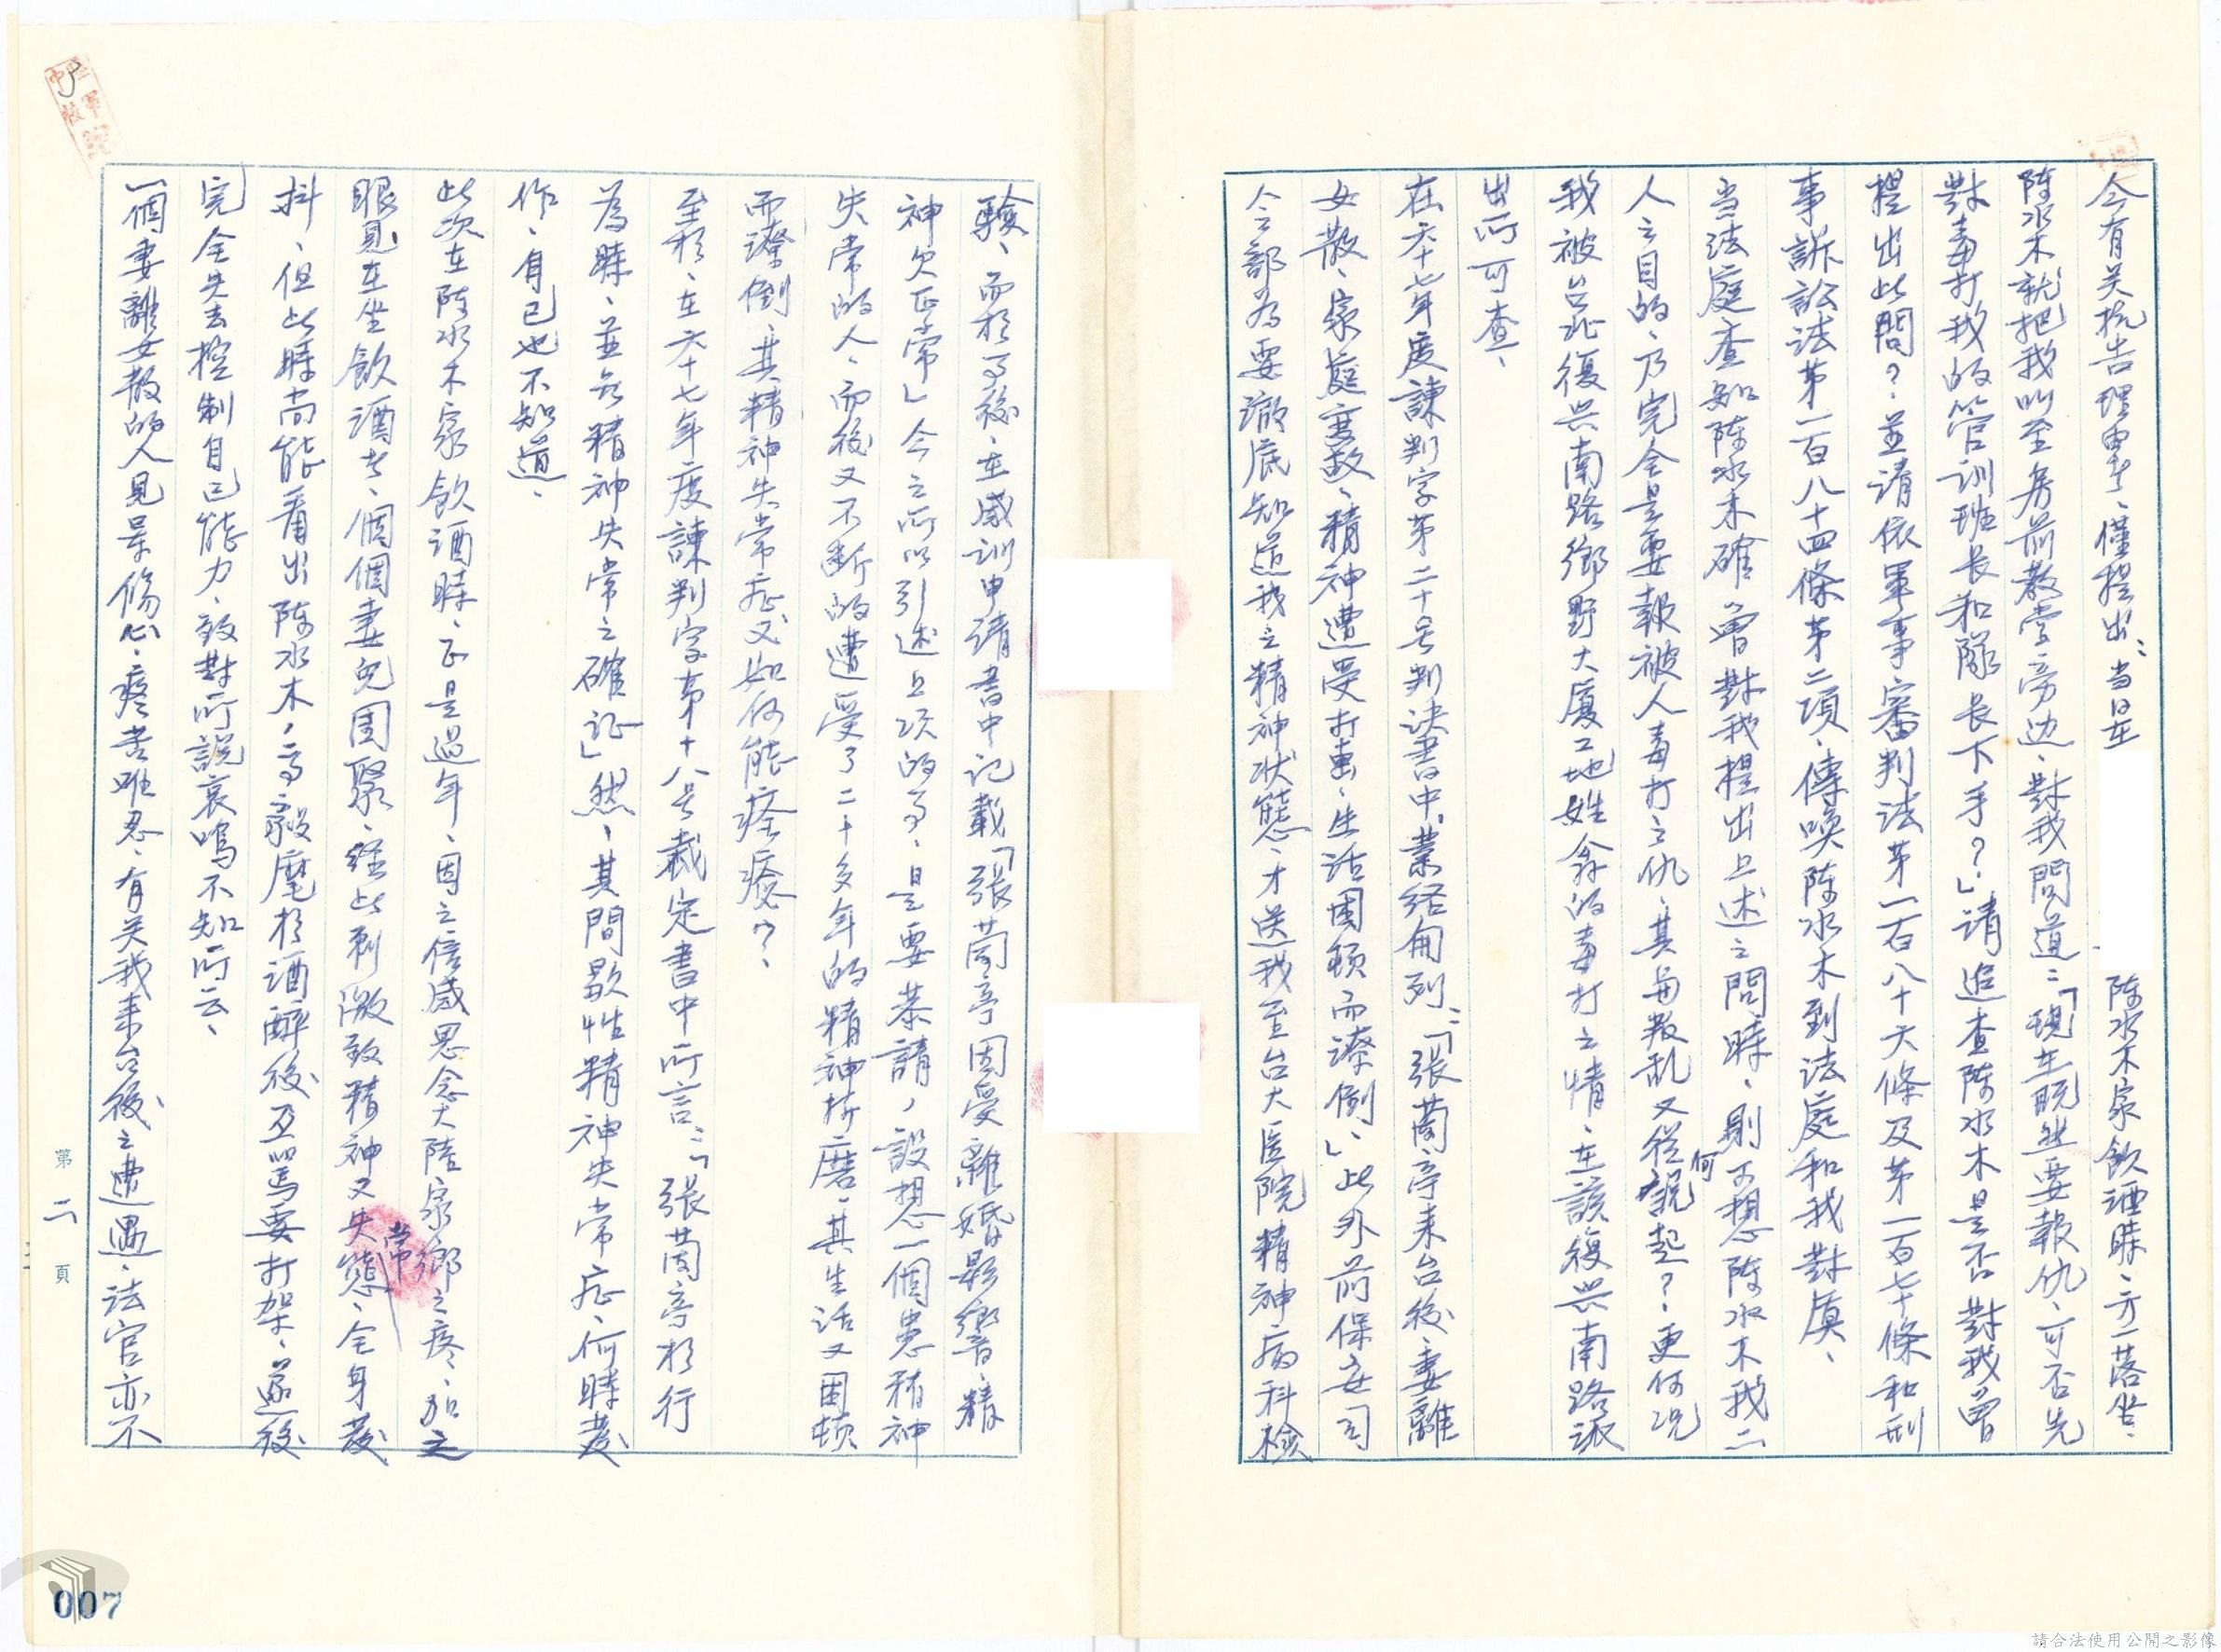 今有关抗告理由，僅提出：当日在
陈水木家飲酒時、方一落坐、
陈水木就把我叫至房前教堂旁边、對我問道：「現在既然要報仇、可否先
對毒打我的管训班长和隊长下手？」请追查陈水木是否對我曾
提出此問？並请依軍事審判法第一百八十六條及第一百七十條和刑
事訴訟法第一百八十四條第二項、傳喚陈水木到法庭和我對質、
当法庭查知陈水木確曾對我提出上述之問時、則可想陈水木我二
人之目的、乃完全是要報被人毒打之仇、其與叛乱又從何說起？更何况
我被台北復兴南路鄉野大厦工地姓翁的毒打之情、在該復兴南路派
出所可查、
在六十七年度諫判字第二十号判决書中、業经舉列：「張蔄亭来台後、妻離
女散、家庭变故、精神遭受打击、生活困顿而潦倒」、此外前保安司
令部为要澈底知道我之精神状態、才送我至台大医院精神病科檢
驗、而於事後、在感训申请書中记載「張蔄亭因受離婚影響、精
神欠正常」今之所以引述上項的事、是要恭請，設想一個患精神
失常的人、而後又不断的遭受了二十多年的精神折磨、其生活又困顿
而潦倒、其精神失常症又如何能痊癒？、
至於、在六十七年度諫判字第十八号裁定書中所言：「張蔄亭於行
為時、並无精神失常之確证」然、其間歇性精神失常症、何時發
作、自己也不知道、
此次在陈水木家飲酒時、正是過年、因之倍感思念大陸家鄉之疼、加之
眼見在坐飲酒者、個個妻兒團聚、经此刺激致精神又失常態、全身發
抖、但此時尚能看出陈水木，高毅麾於酒醉後互罵要打架、遂後
完全失去控制自己能力、致對所說哀鳴不知所云、
一個妻離女散的人見景傷心、疼苦难忍、有关我来台後之遭遇、法官亦不
第二頁
007
請合法使用公開之影像